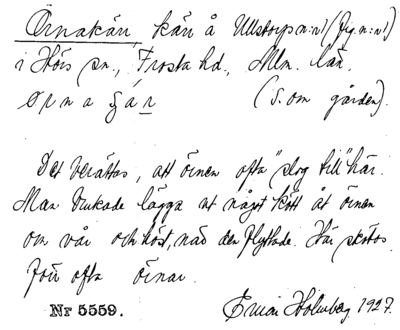 Örnakärr, kärr å Ullstorp n:r 1 (fig. n:r 1)
i Hörs sn., Frosta hd., Mlm. län.
ørnaʃär (S. om gården).
Det berättas, att örnen ofta "slog till" här.
Man brukade lägga ut något kött åt örnen
om vår och höst, när den flyttade. Här skötos
förr ofta örnar.
Nr 5559. Holmberg 1927.